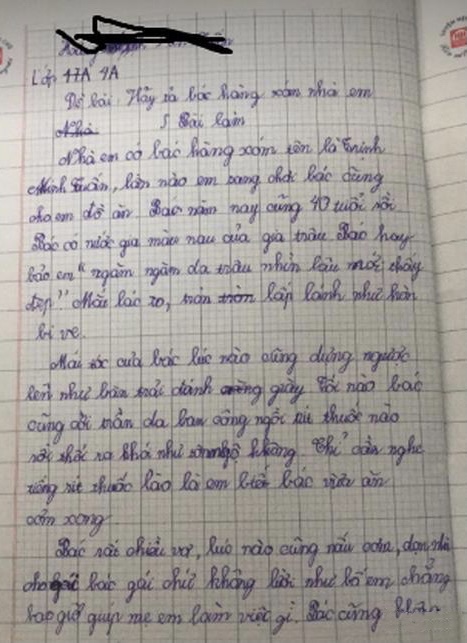 Lớp 17A 4A
Đề bài: Hãy tả bác hàng xóm nhà em
Nhà Bài làm
Nhà em có bác hàng xóm tên là Trịnh
Minh Tuấn, lần nào em sang chơi bác cũng
cho em đồ ăn. Bác năm nay cũng 40 tuổi rồi
Bác có nước gia màu nau của gia trâu Bác hay
bảo em " ngăm ngăm da trâu nhìn lâu mới thấy
đẹp" Mắt bác to, tròn lấp lánh như hòn
bi ve.
Mái tóc của bác lúc nào cũng dựng ngược
lên như bàn trải đánh giày Tối nào bác
cũng cởi trần da ban công ngồi rít thuốc nào
rồi thổi ra khói như khổng. Chỉ cần nghe
tiếng rít thuốc lào là em biết bác vừa ăn
cơm xong.
Bác rất chiều vợ, lúc nào cũng nấu cơm, dọn nhà
cho bác gái chứ không lười như bố em chẳng
bao giờ giúp mẹ em làm việc gì. Bác cũng